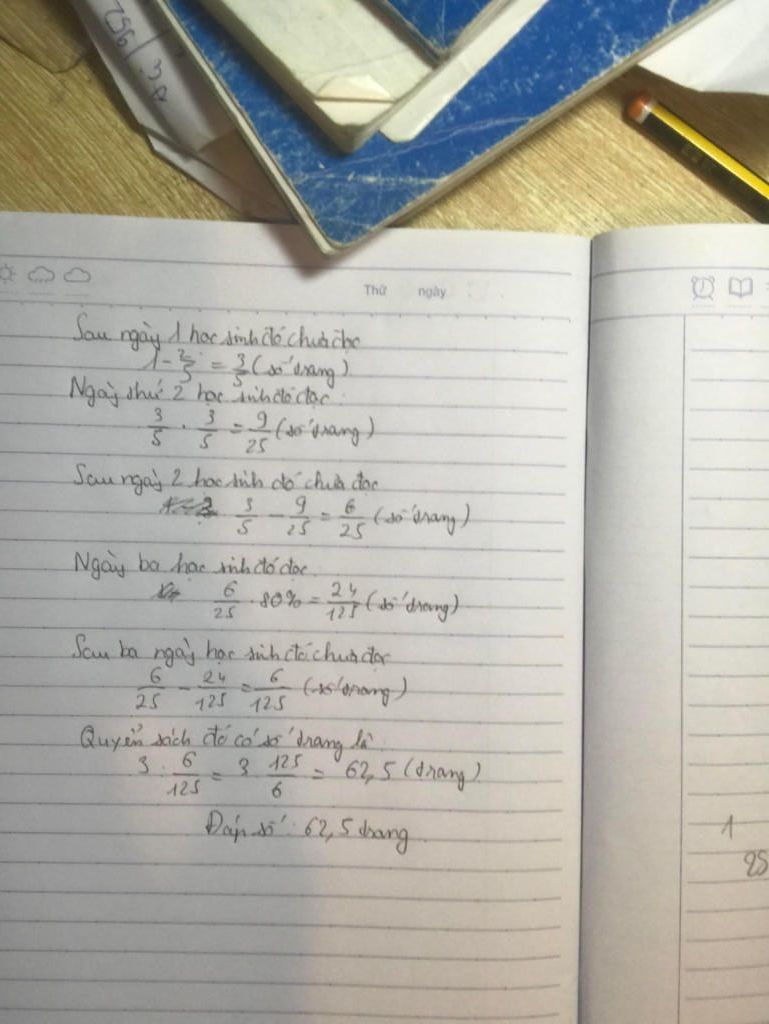 Thứ ngày
Sau ngày 1 học sinh đó chưa đọc
1 - 2/5 = 3/5 (số trang)
Ngày thứ 2 học sinh đó đọc:
3/5 . 3/5 = 9/25 (số trang)
Sau ngày 2 học sinh đó chưa đọc
3/5 - 9/25 = 6/25 (số trang)
Ngày ba học sinh đó đọc:
6/25 . 80% = 24/125 (số trang)
Sau ba ngày học sinh đó chưa đọc
6/25 - 24/125 = 6/125 (số trang)
Quyển sách đó có số trang là:
3 : 6/125 = 3 . 125/6 = 62,5 (trang)
Đáp số: 62,5 trang
1
25